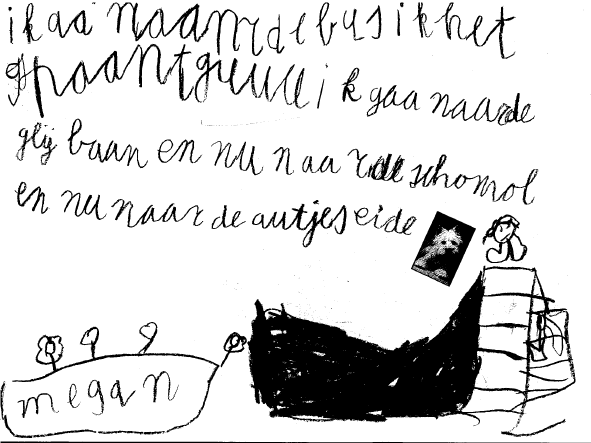 ik aa naanr de bus ik het
spaantgeuul ik gaa naar de
glij baan en nu naar de schomol
en nu naar de autjes eide
megan